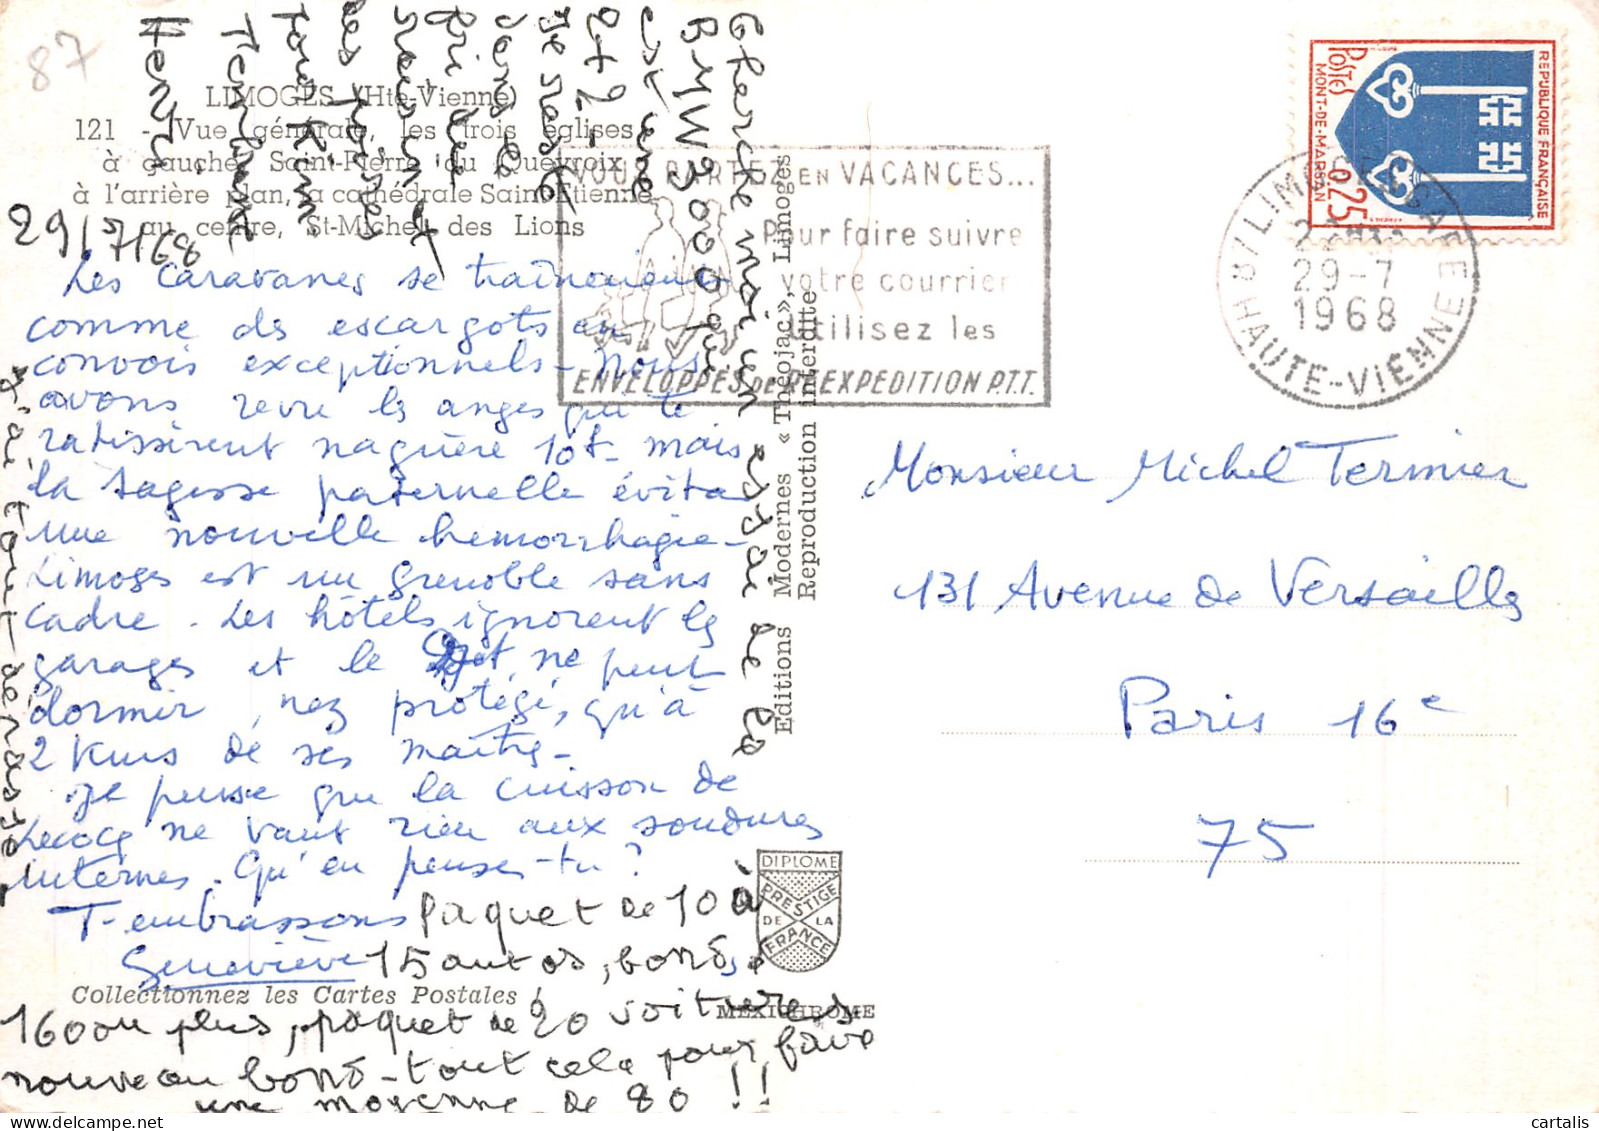 87
LIMOGES (Hte-Vienne)
121 - Vue générale, les trois églises
à gauche, Saint-Pierre du Queyroix
à l'arrière plan, la cathédrale Saint-Etienne
au centre, St-Michel des Lions
29/7/68
Les caravanes se traînaient
comme des escargots en
convois exceptionnels - Nous
avons revu les anges qui te
ratissèrent naguère 10f - mais
la sagesse paternelle évita
une nouvelle hémorrhagie -
Limoges est un Grenoble sans
cadre. Les hôtels ignorent les
garages et le ne peut
dormir, nez protégé, qu'à
2 kms de ses maîtres -
Je pense que la cuisson de
Lecocq ne vaut rien aux soudures
internes. Qu'en penses-tu ?
T-embrassons
Geneviève
Paquet de 10 à
15 autos, bonds à
160 ou plus, paquet de 20 voitures
nouveau bond - tout cela pour faire
une moyenne de 80 !!
j'ai tout
Cherche moi un essai de la
BMW 3000 qui
est une
2+2 -
Je reste
dans la
et
Tonkin
T'embrasse
Henri
VOUS PARTEZ EN VACANCES...
Pour faire suivre
votre courrier
utilisez les
ENVELOPPES DE RÉEXPEDITION P.T.T.
Editions Modernes « Théojac », Limoges
Reproduction interdite
DIPLOME
PRESTIGE
DE LA
FRANCE
Collectionnez les Cartes Postales !
MEXICHROME
REPUBLIQUE FRANÇAISE
POSTES
MONT-DE-MARSAN
0,25
87 LIMOGES GARE
29-7
1968
HAUTE-VIENNE
Monsieur Michel Termier
131 Avenue de Versailles
Paris 16e
75
cartalis